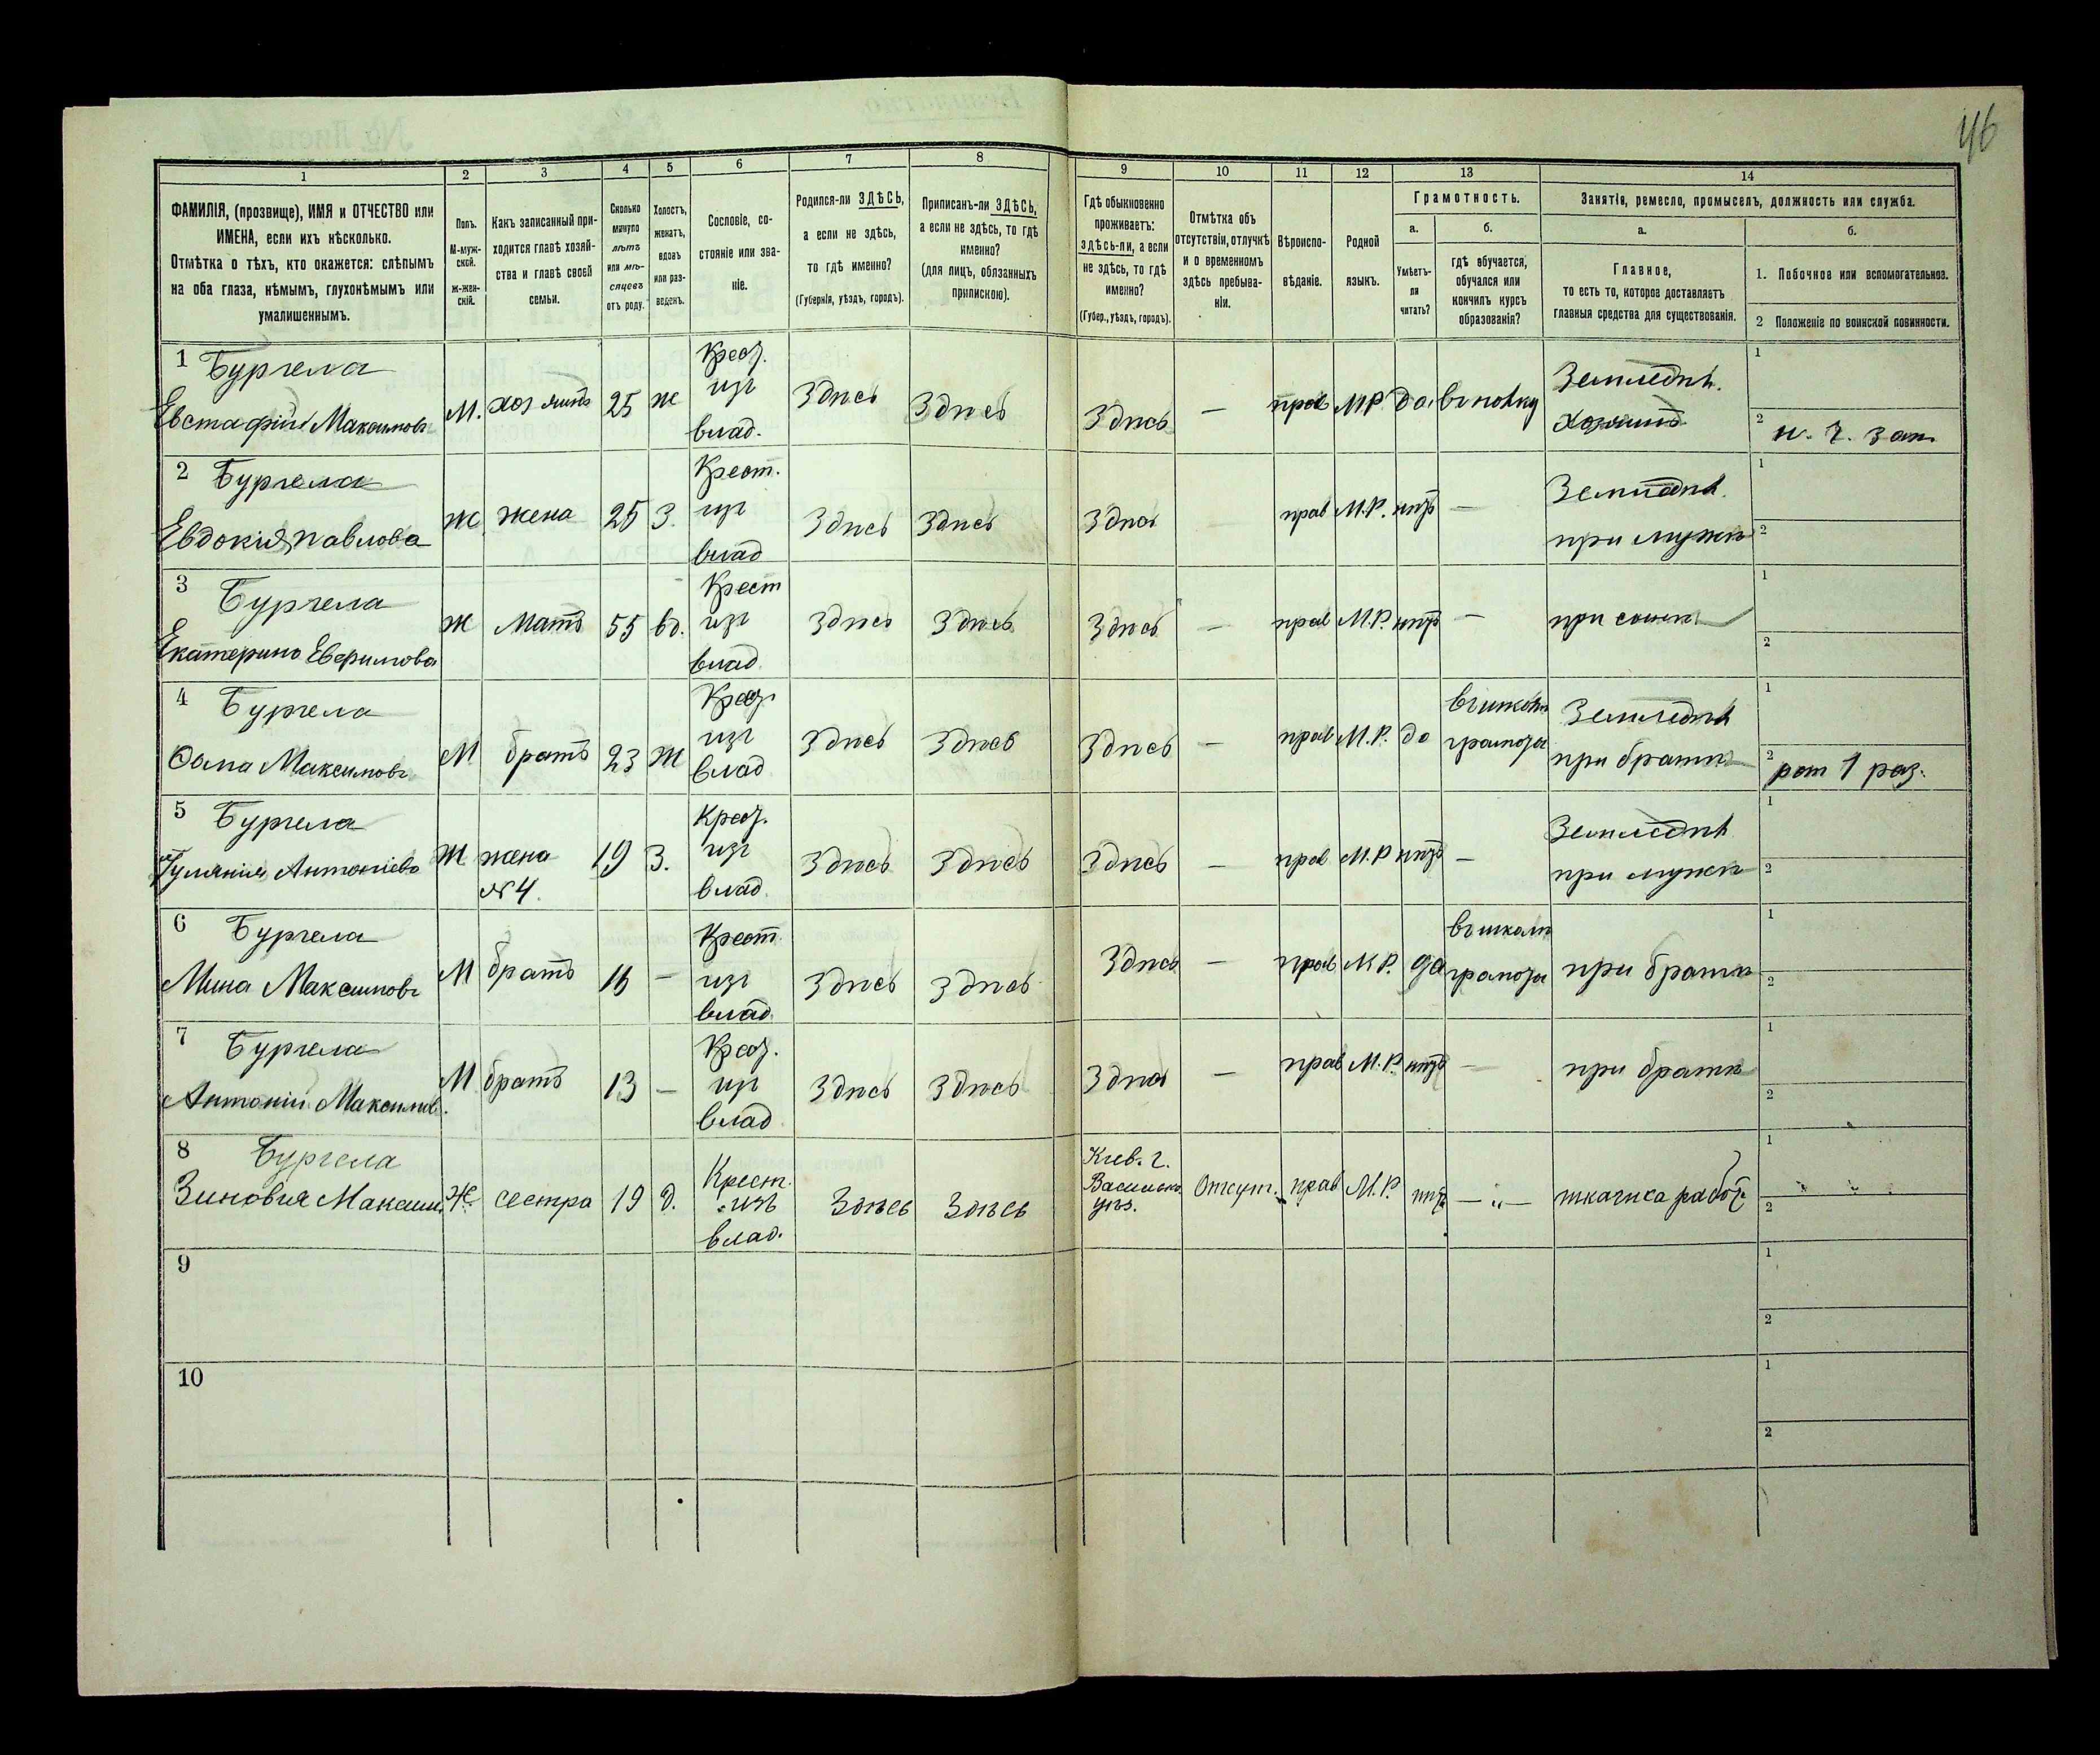 46
1 2 3 4 5 6 7 8 9 10 11 12 13 14
ФАМИЛІЯ, (прозвище), ИМЯ и ОТЧЕСТВО или
ИМЕНА, если ихъ нѣсколько.
Отмѣтка о тѣхъ, кто окажется: слѣпымъ
на оба глаза, нѣмымъ, глухонѣмымъ или
умалишеннымъ.
Полъ.
М-муж-
ской.
ж-жен-
скій.
Какъ записанный при-
ходится главѣ хозяй-
ства и главѣ своей
семьи.
Сколько
минуло
лѣтъ
или мѣ-
сяцевъ
отъ роду.
Холостъ,
женатъ,
вдовъ
или раз-
веденъ.
Сословіе, со-
стояніе или зва-
ніе.
Родился-ли ЗДѢСЬ,
а если не здѣсь,
то гдѣ именно?
(Губернія, уѣздъ, городъ).
Приписанъ-ли ЗДѢСЬ,
а если не здѣсь, то гдѣ
именно?
(для лицъ, обязанныхъ
припискою).
Гдѣ обыкновенно
проживаетъ:
здѣсь-ли, а если
не здѣсь, то гдѣ
именно?
(Губер., уѣздъ, городъ).
Отмѣтка объ
отсутствіи, отлучкѣ
и о временномъ
здѣсь пребыва-
ніи.
Вѣроиспо-
вѣданіе.
Родной
языкъ.
Грамотность.
а.
Умѣетъ-
ли
читать?
б.
гдѣ обучается,
обучался или
кончилъ курсъ
образованія?
Занятія, ремесло, промыселъ, должность или служба.
а.
Главное,
то есть то, которое доставляетъ
главныя средства для существованія.
б.
1. Побочное или вспомогательное.
2 Положеніе по воинской повинности.
1 Бургела
Евстафій Максимовъ
М. хозяинъ 25 ж
Крест.
изъ
влад.
Здѣсь Здѣсь Здѣсь — прав М.Р. да
Землед.
хозяинъ
1
2
2 Бургела
Евдокія Павлова
Ж жена 25 З.
Крест.
изъ
влад
Здѣсь Здѣсь Здѣсь — прав М.Р. нѣтъ —
Землед.
при мужѣ
1
2
3 Бургела
Екатерина Евфимова
Ж Мать 55 вд.
Крест
изъ
влад.
Здѣсь Здѣсь Здѣсь — прав М.Р. нѣтъ —
при сынѣ
1
2
4 Бургела
Фома Максимовъ
М братъ 23 Ж
Крест
изъ
влад
Здѣсь Здѣсь Здѣсь — прав М.Р. да
въ школѣ
грамоты
Землед.
при братѣ
1
2 рат 1 раз.
5 Бургела
Антоніева
Ж жена
№4.
19 З.
Крест.
изъ
влад.
Здѣсь Здѣсь Здѣсь — прав М.Р нѣтъ —
Землед.
при мужѣ
1
2
6 Бургела
Мина Максимовъ
М братъ —
Крест.
изъ
влад.
Здѣсь Здѣсь Здѣсь — прав М.Р. да
въ школѣ
грамоты
при братѣ
1
2
7 Бургела
Антоній Максимов.
М братъ 13 —
Крест.
изъ
влад
Здѣсь Здѣсь Здѣсь — прав М.Р. нѣтъ —
при братѣ
1
2
8 Бургела
Зиновія Максим.
Ж. сестра 19 д.
Крест.
изъ
влад.
Здѣсь Здѣсь
Кіев. г.
Васильк.
уѣз.
Отсут. прав М.Р. нѣт. — „ —
1
2
9
1
2
10
1
2